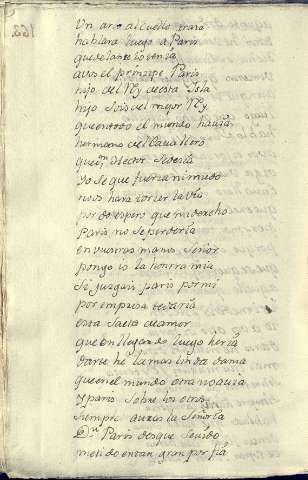 Un arco al cuello traia
hablara luego a Paris
que delante lo tenia
a vos el principe Paris
hijo del Rey de esta Isla
hijo sois del mejor Rey
que en todo el mundo havia
hermano del Cavallero
que Hector se decia
Yo se que fuerza ni miedo
no os hara torcer la via
por do espero que mi derecho
Paris no se perderia
en vuestras manos Señor
pongo io la honrra mia
si juzgais Paris por mi
por empresa te daria
esta Saeta de amor
que en llegando luego heria
darte he la mas linda dama
que en el mundo otra no avia
y Paris sobre los otros
siempre auras la Señoria
Paris desque se vido
metido en tan gran porfia